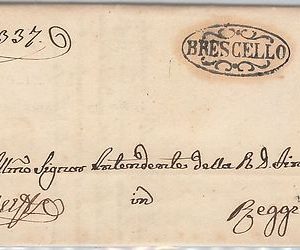 337.
BRESCELLO
Signor Intendente della R. D.
in
Regge